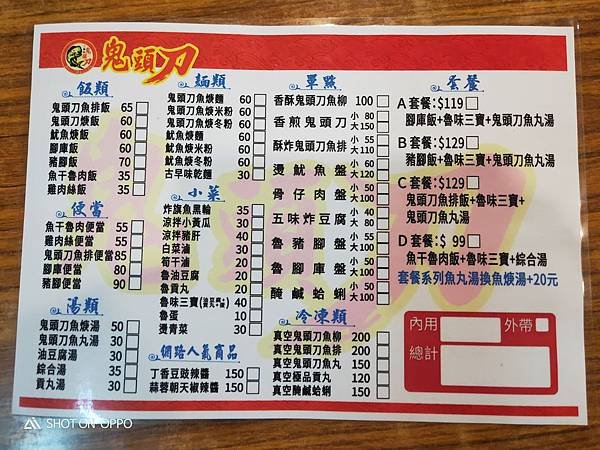 鬼頭刀
飯類
鬼頭刀魚排飯 65
鬼頭刀魚焿飯 60
魷魚焿飯 60
腳庫飯 60
豬腳飯 70
魚干魯肉飯 35
雞肉絲飯 35
便當
魚干魯肉便當 55
雞肉絲便當 55
鬼頭刀魚排便當 85
腳庫便當 80
豬腳便當 90
湯類
鬼頭刀魚焿湯 50
鬼頭刀魚丸湯 30
油豆腐湯 30
綜合湯 35
貢丸湯 30
麵類
鬼頭刀魚焿麵 60
鬼頭刀魚焿米粉 60
鬼頭刀魚焿冬粉 60
魷魚焿麵 60
魷魚焿米粉 60
魷魚焿冬粉 60
古早味乾麵 30
小菜
炸旗魚黑輪 35
涼拌小黃瓜 30
涼拌豬肝 40
白菜滷 30
筍干滷 20
魯油豆腐 20
魯貢丸 20
魯味三寶 40
魯蛋 10
燙青菜 30
網路人氣商品
丁香豆豉辣醬 150
蒜蓉朝天椒辣醬 150
單點
香酥鬼頭刀魚柳 100
香煎鬼頭刀魚 小80 大150
酥炸鬼頭刀魚排 小60 大110
燙魷魚盤 小55 大120
骨仔肉盤 小50 大100
五味炸豆腐 小40 大80
魯豬腳盤 小55 大100
魯腳庫盤 小50 大100
醃鹹蛤蜊 小50 大100
冷凍類
真空鬼頭刀魚柳 200
真空鬼頭刀魚排 200
真空鬼頭刀魚丸 150
真空極品貢丸 120
真空醃鹹蛤蜊 150
套餐
A套餐:$119
腳庫飯+魯味三寶+鬼頭刀魚丸湯
B套餐:$129
豬腳飯+魯味三寶+鬼頭刀魚丸湯
C套餐:$129
鬼頭刀魚排飯+魯味三寶+
鬼頭刀魚丸湯
D套餐:$ 99
魚干魯肉飯+魯味三寶+綜合湯
套餐系列魚丸湯換魚焿湯+20元
內用 外帶
總計
SHOT ON OPPO